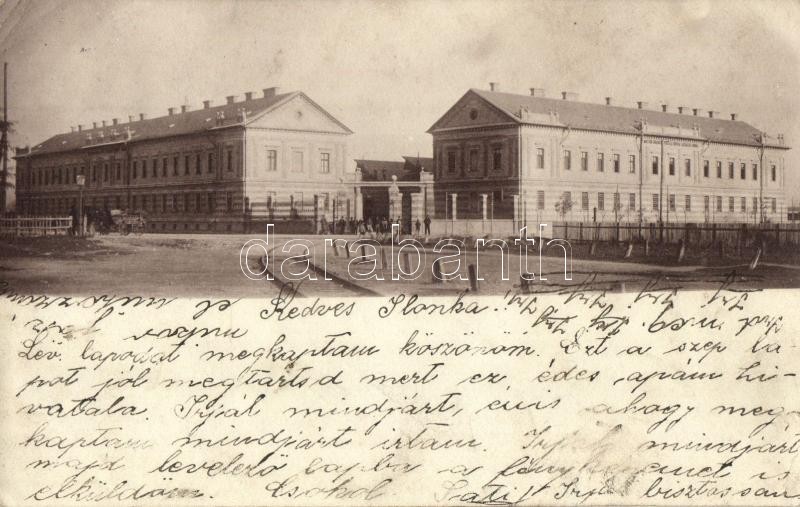 darabanth
Kedves Ilonka!
Lev. lapodat megkaptam köszönöm. Ezt a szep la-
pot jól megtartsd mert ez, édes apám hi-
vatala. Irjál mindjárt, én is ahogy meg-
kaptam mindjárt irtam. Irjál mindjárt
majd levelező lapba a fényképemet is
elküldöm. Csokol Sati! Irjál bisztossan